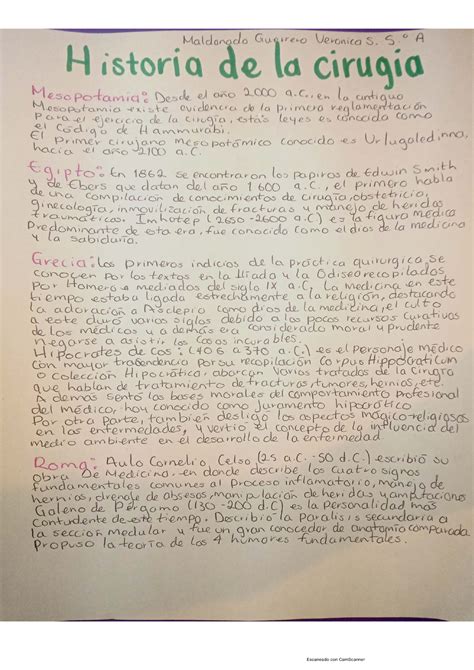 Maldonado Guerrero Veronica S. 5.° A
Historia de la cirugía
Mesopotamia: Desde el año 2,000 a.C. en la antigua
Mesopotamia existe evidencia de la primera reglamentación
para el ejercicio de la cirugía, estás leyes es conocido como
el Código de Hammurabi.
El Primer cirujano mesopotámico conocido es Urlugaledinna,
hacia el año 2100 a.C.
Egipto: En 1862 se encontraron los papiros de Edwin Smith
y de Ebers que datan del año 1600 a.C., el primero habla
de una compilación de conocimientos de cirugía, obstetricio,
ginecología, inmovilización de fracturas y manejo de heridas
traumáticas. Imhutep (2650-2600 a.C) es la figura médica
Predominante de esta era, fue conocido como el dios de la medicina
y la sabiduria.
Grecia: los primeros indicios de la práctica quirurgica se
conocen por los textos en la Ilíada y la Odisea recopilados
por Homero a mediados del siglo IX a.C. La medicina en este
tiempo estaba ligada estrechamente a la religión, destacando
la adoración a Asclepio como dios de la medicina, el culto
a este duró varios siglos debido a los pocos recursos curativos
de los médicos y además era considerado moral y prudente
negarse a asistir los casos incurables.
Hipócrates de Cos: (406 a 370 a.C.) es el personaje médico
con mayor trascendencia por su recopilación Corpus Hippocraticum
o colección Hipocrática, abarcan Varios tratados de la Cirugía
que hablan de tratamiento de fracturas, tumores, hernias, etc.
Además sentó las bases morales del comportamiento profesional
del médico, hoy conocido como juramento hipocrático
Por otra parte, también desligó los aspectos mágico-religiosos
en las enfermedades, y vertió el concepto de la influencia del
medio ambiente en el desarrollo de la enfermedad
Roma: Aulo Cornelio, Celso (25 a.C. -50 d.C.) escribió su
obra De Medicina. en donde describe los cuatro signos
fundamentales comunes al proceso inflamatorio, manejo de
hernias, drenaje de absesos, manipulación de heridas y amputaciones
Galeno de Pérgamo (130-200 d.C) es la personalidad más
contundente de este tiempo. Describió la parálisis secundaria a
la sección medular y fue un gran conocedor de anatomía comparada
Propuso la teoría de los 4 humores fundamentales.
Escaneado con CamScanner